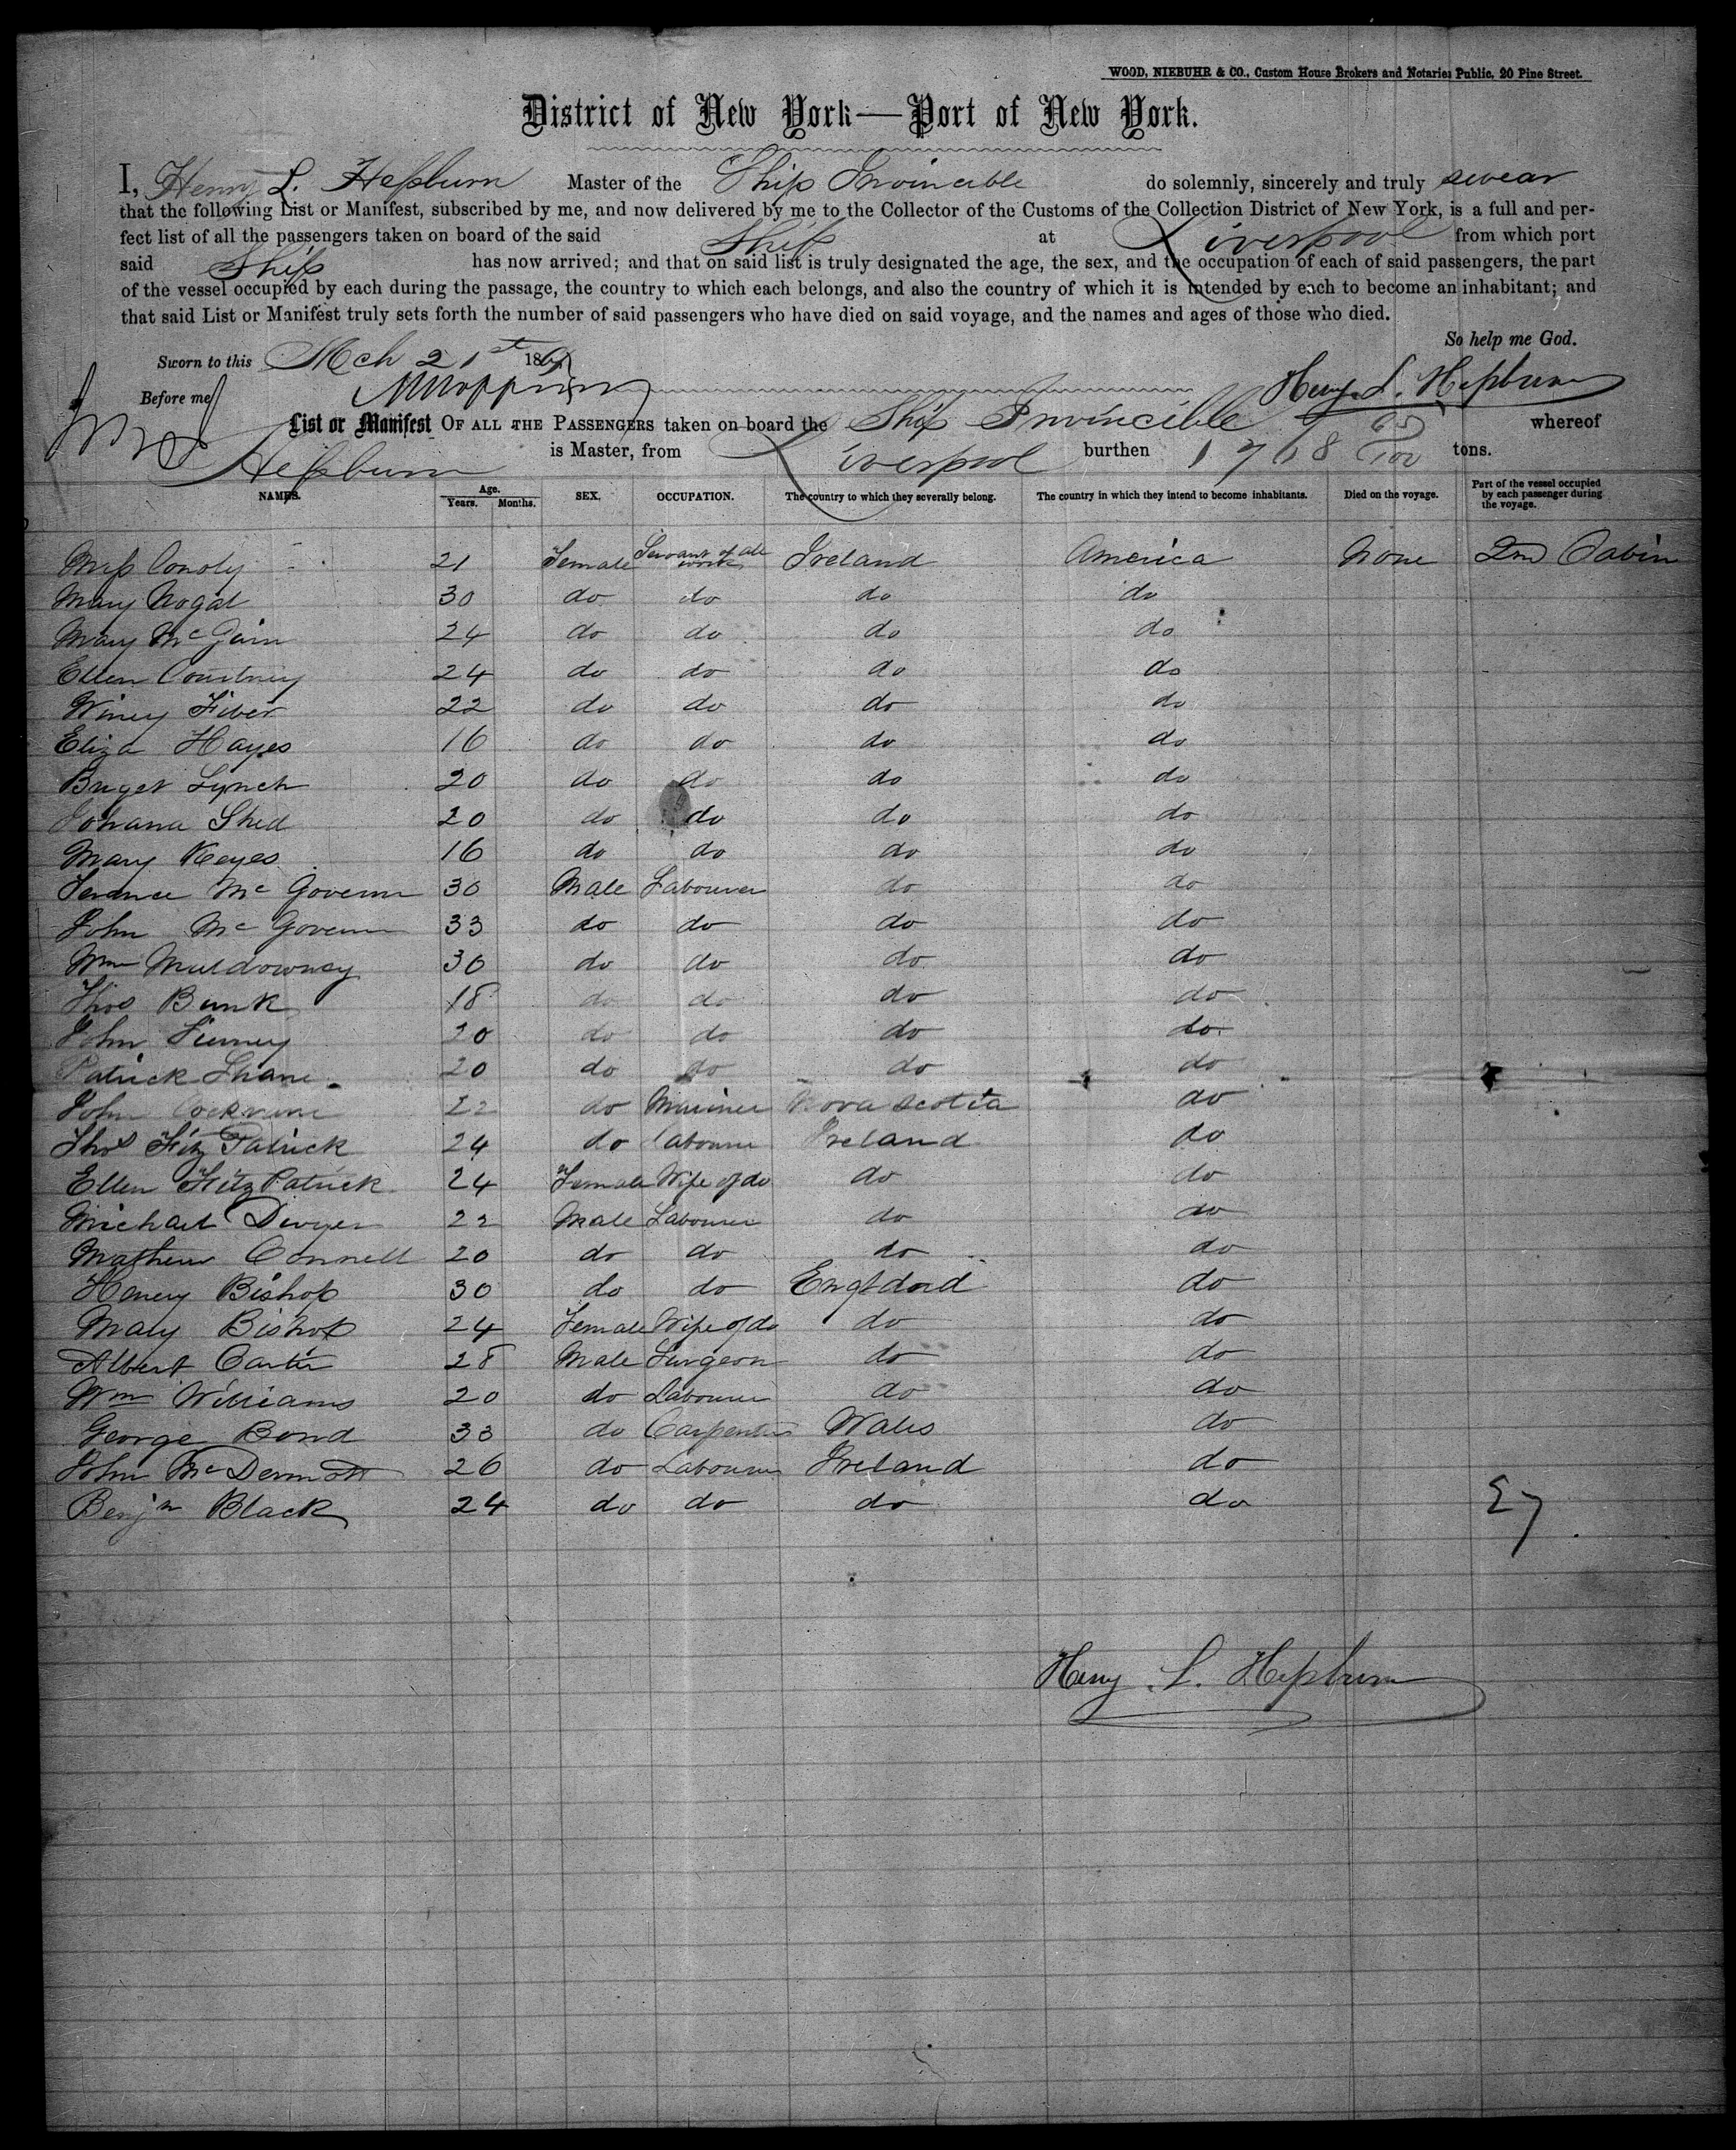 WOOD, NIEBUHR & CO., Custom House Brokers and Notaries Public, 20 Pine Street.
District of New York—Port of New York.
I, Henry L. Hepburn Master of the Ship Invincible do solemnly, sincerely and truly swear
that the following List or Manifest, subscribed by me, and now delivered by me to the Collector of the Customs of the Collection District of New York, is a full and per-
fect list of all the passengers taken on board of the said Ship at Liverpool from which port
said Ship has now arrived; and that on said list is truly designated the age, the sex, and the occupation of each of said passengers, the part
of the vessel occupied by each during the passage, the country to which each belongs, and also the country of which it is intended by each to become an inhabitant; and
that said List or Manifest truly sets forth the number of said passengers who have died on said voyage, and the names and ages of those who died.
So help me God.
Sworn to this Mch 21st 186
Before me Henry L. Hepburn
List or Manifest OF ALL THE PASSENGERS taken on board the Ship Invincible whereof
Hepburn is Master, from Liverpool burthen 1768 tons.
NAMES. Age. Years. Months. SEX. OCCUPATION. The country to which they severally belong. The country in which they intend to become inhabitants. Died on the voyage. Part of the vessel occupied by each passenger during the voyage.
Miss Conoly 21 Female Servant of all work Ireland America None 2nd Cabin
Mary Nogal 30 do do do do
Mary McGain 24 do do do do
Ellen Courtney 24 do do do do
Winey Fiber 22 do do do do
Eliza Hayes 16 do do do do
Briget Lynch 20 do do do do
Johana Shed 20 do do do do
Mary Keyes 16 do do do do
Terance McGovern 30 Male Labourer do do
John McGovern 33 do do do do
Wm Muldowney 30 do do do do
Thos Bunk 18 do do do do
John 20 do do do do
Patrick Shane 20 do do do do
John 22 do Mariner Nova Scotia do
Thos Fitz Patrick 24 do Labourer Ireland do
Ellen Fitz Patrick 24 Female Wife of do do do
Michael Dwyer 22 Male Labourer do do
Mathew Connell 20 do do do do
Henery Bishop 30 do do England do
Mary Bishop 24 Female Wife of do do do
Albert Carter 28 Male Surgeon do do
Wm Williams 20 do Labourer do do
George Bond 33 do Carpenter Wales do
John McDermott 26 do Labourer Ireland do
Benjn Black 24 do do do do
27
Henry L. Hepburn